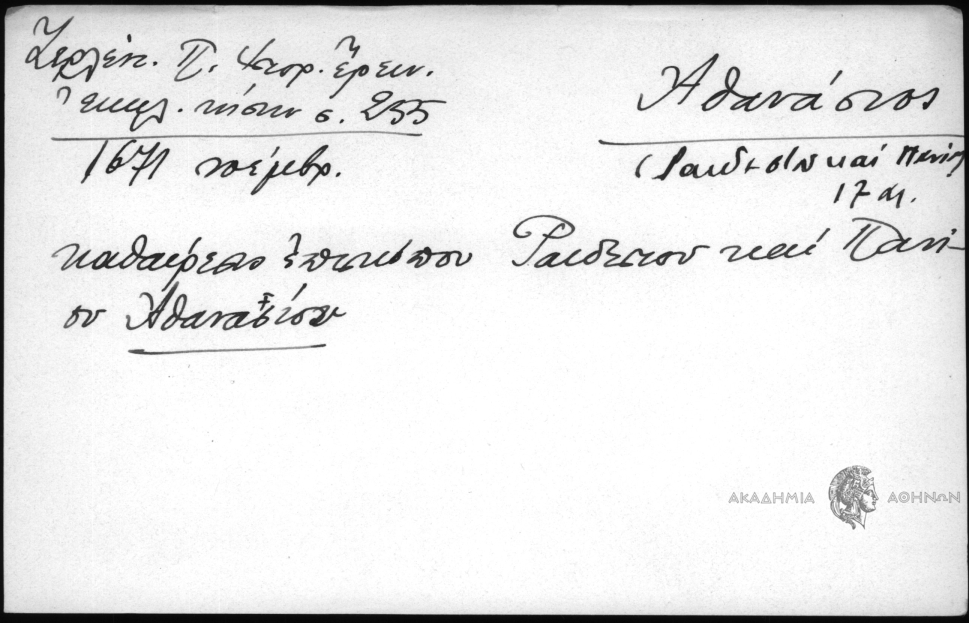 Ζερλέντ. Π. Ἱστορ. Ἔρευν.
ἐκκλ. νήσων σ. 255
1671 νοέμβρ.
Ἀθανάσιος
(Ραιδεστοῦ καὶ Πανίου
17 αἰ.
καθαίρεσις ἐπισκόπου Ραιδεστοῦ καὶ Πανί-
ου Ἀθανασίου
ΑΚΑΔΗΜΙΑ ΑΘΗΝΩΝ